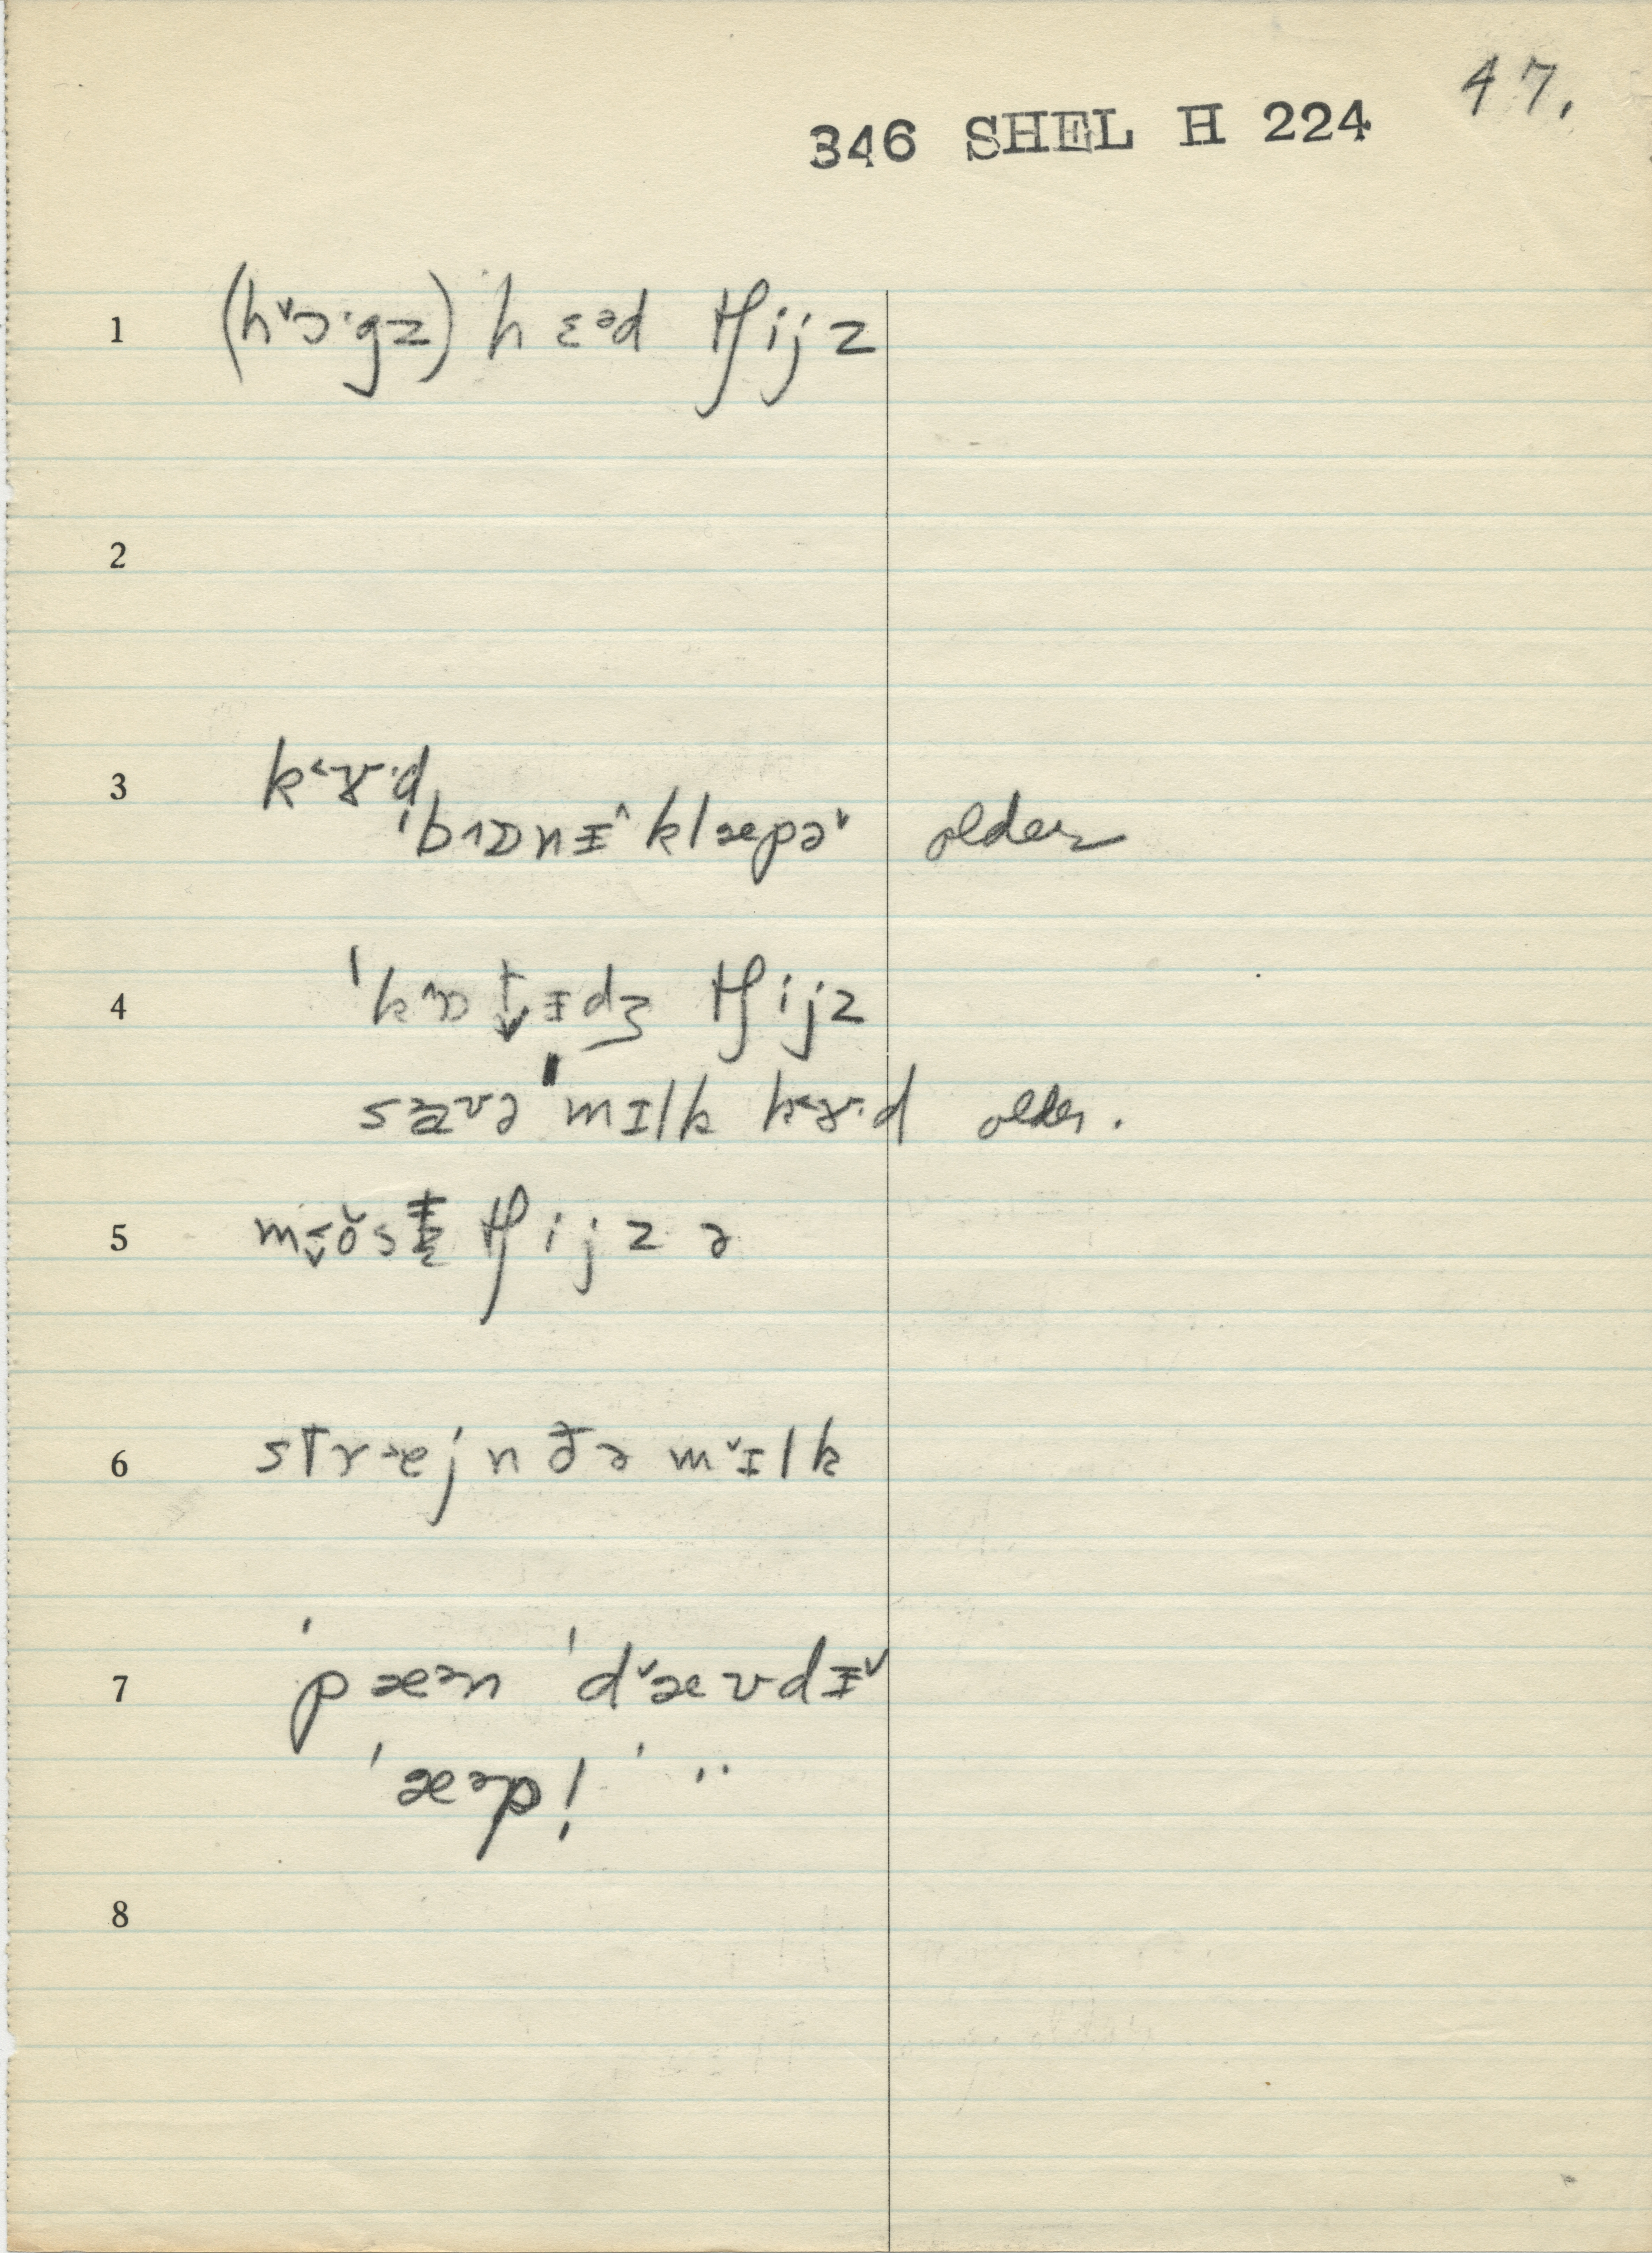 47.
346 SHEL H 224
1 (h˅ɔ·gz) hɛᵊd tʃijz
2
3 k˂ɤ·d
ˈb˄ɒnɪ̵˄ klæpə˅ older
4 ˈk˄ɒtɪ̵dʒ tʃijz
sævə ˈmɪlk k˂ɤ·d older.
5 tʃijz ə
6 stræjn ðə m˅ɪlk
7 ˈpæᵊn ˈd˅ævdɪ̵˅
ˈæᵊp! ˈ ··
8